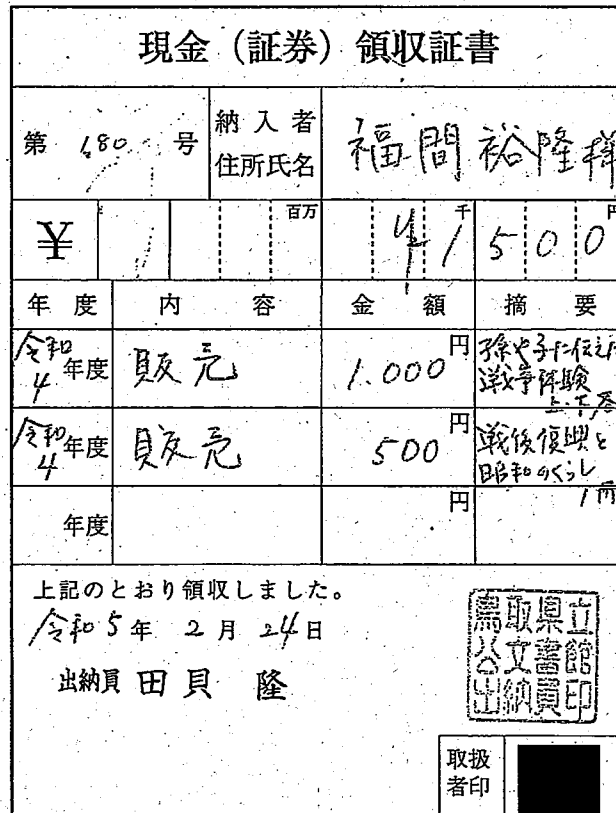 現金（証券）領収証書
第 180 号
納入者
住所氏名
福間裕隆様
￥
百万
千
円
¥1500
年度 内容 金額 摘要
令和4年度 販売 1.000円 孫や子に伝えた
戦争体験
上・下巻
令和4年度 販売 500円 戦後復興と
昭和のくらし
1冊
年度 円
上記のとおり領収しました。
令和5年2月24日
出納員 田貝 隆
鳥取県立
公文書館
出納員印
取扱
者印